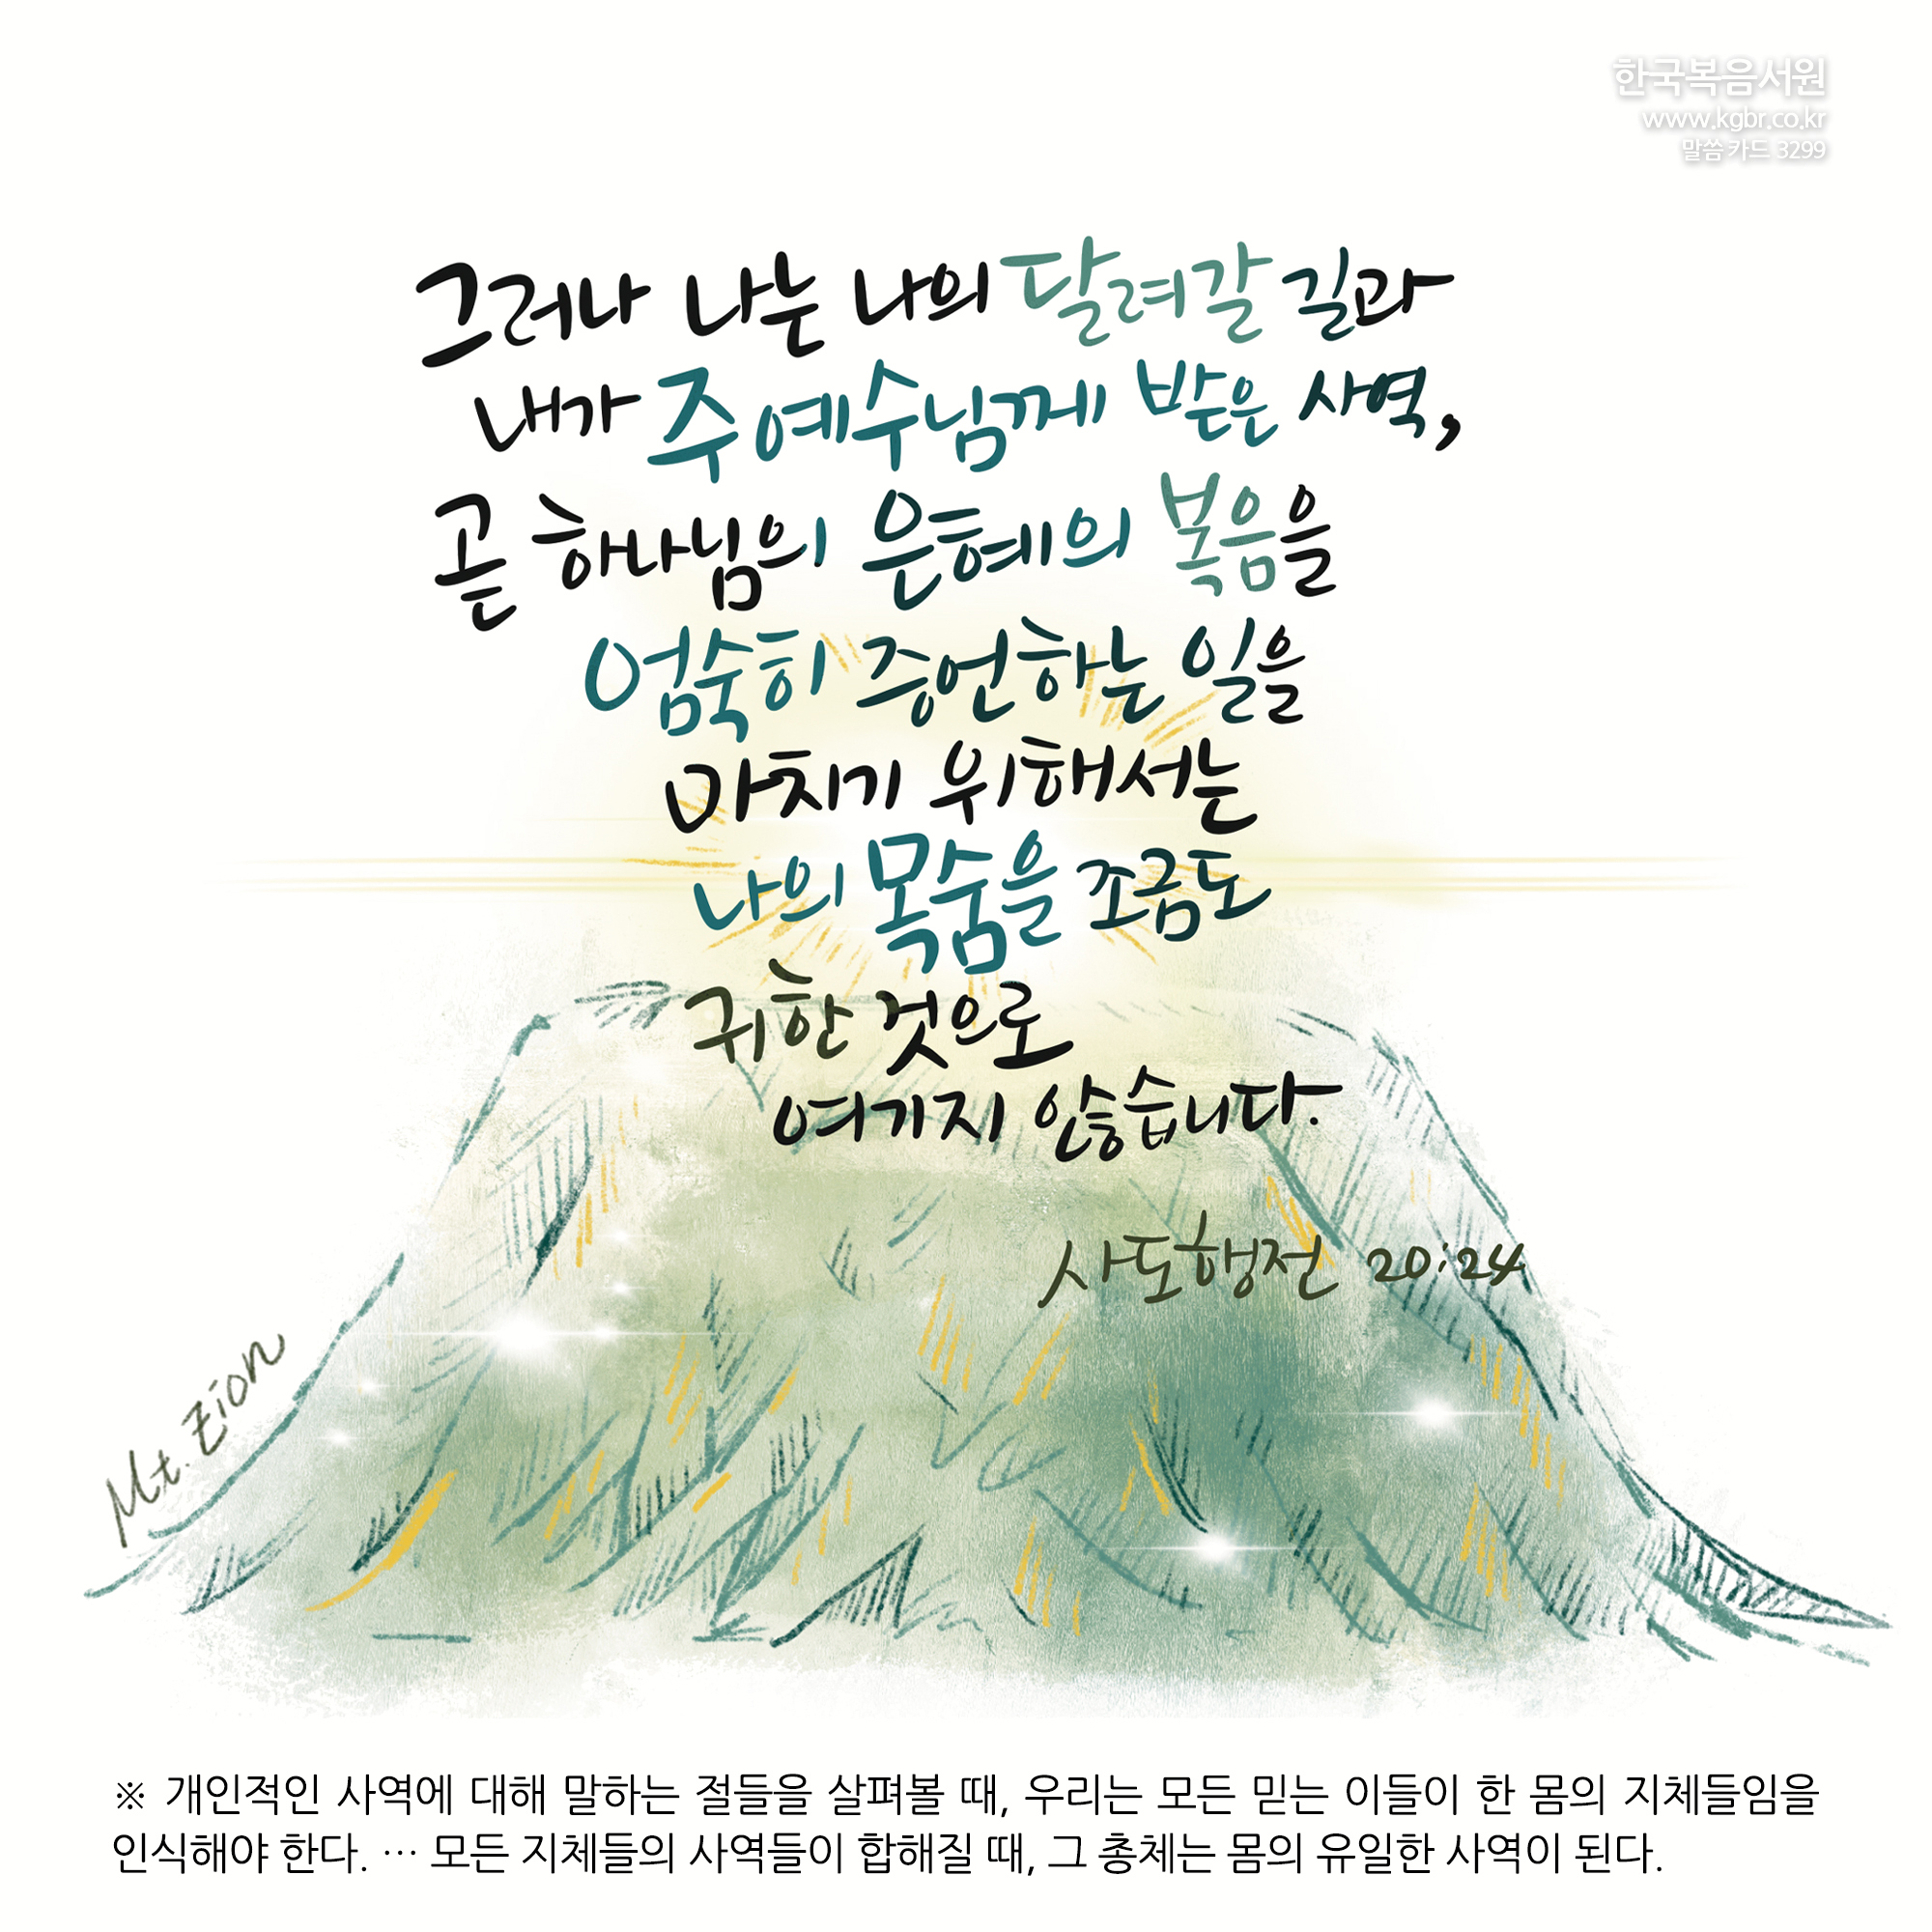 한국복음서원
www.kgbr.co.kr
말씀 카드 3299
그러나 나는 나의 달려갈 길과
내가 주 예수님께 받은 사역,
곧 하나님의 은혜의 복음을
엄숙히 증언하는 일을
마치기 위해서는
나의 목숨을 조금도
귀한 것으로
여기지 않습니다.
사도행전 20:24
Mt. Zion
※ 개인적인 사역에 대해 말하는 절들을 살펴볼 때, 우리는 모든 믿는 이들이 한 몸의 지체들임을
인식해야 한다. … 모든 지체들의 사역들이 합해질 때, 그 총체는 몸의 유일한 사역이 된다.